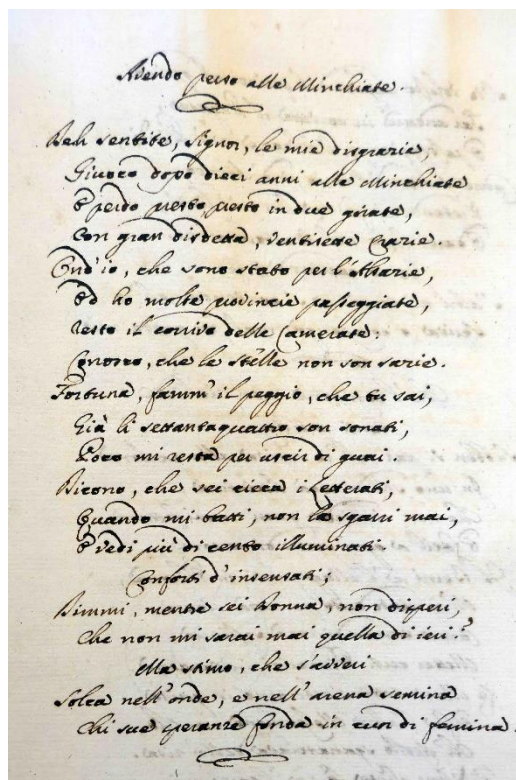 Avendo perso alle Minchiate.
Deh sentite, Signor, le mie disgrazie,
Giuoco dopo dieci anni alle Minchiate
E perdo presto, presto in due girate,
Con gran disdetta, ventisette Crazie.
Ond'io, che sono stato per l'Alsazie,
Ed ho molte provincie passeggiate,
Resto il corrivo delle Camerate.
Conosco, che le stelle non son sazie.
Fortuna, fammi il peggio, che tu sai,
Già li settantaquattro son sonati,
Poco mi resta per uscir di guai.
Dicono, che sei cieca i Letterati,
Quando mi batti, non la sgarri mai,
E vedi più di cento illuminati.
Conforti d'insensati;
Dimmi, mentre sei Donna, non disperi,
Che non mi sarai mai quella di ieri?
Ma stimo, che s'avveri
Solca nell'onde, e nell'arena semina
Chi sue speranze fonda in cuor di femina.